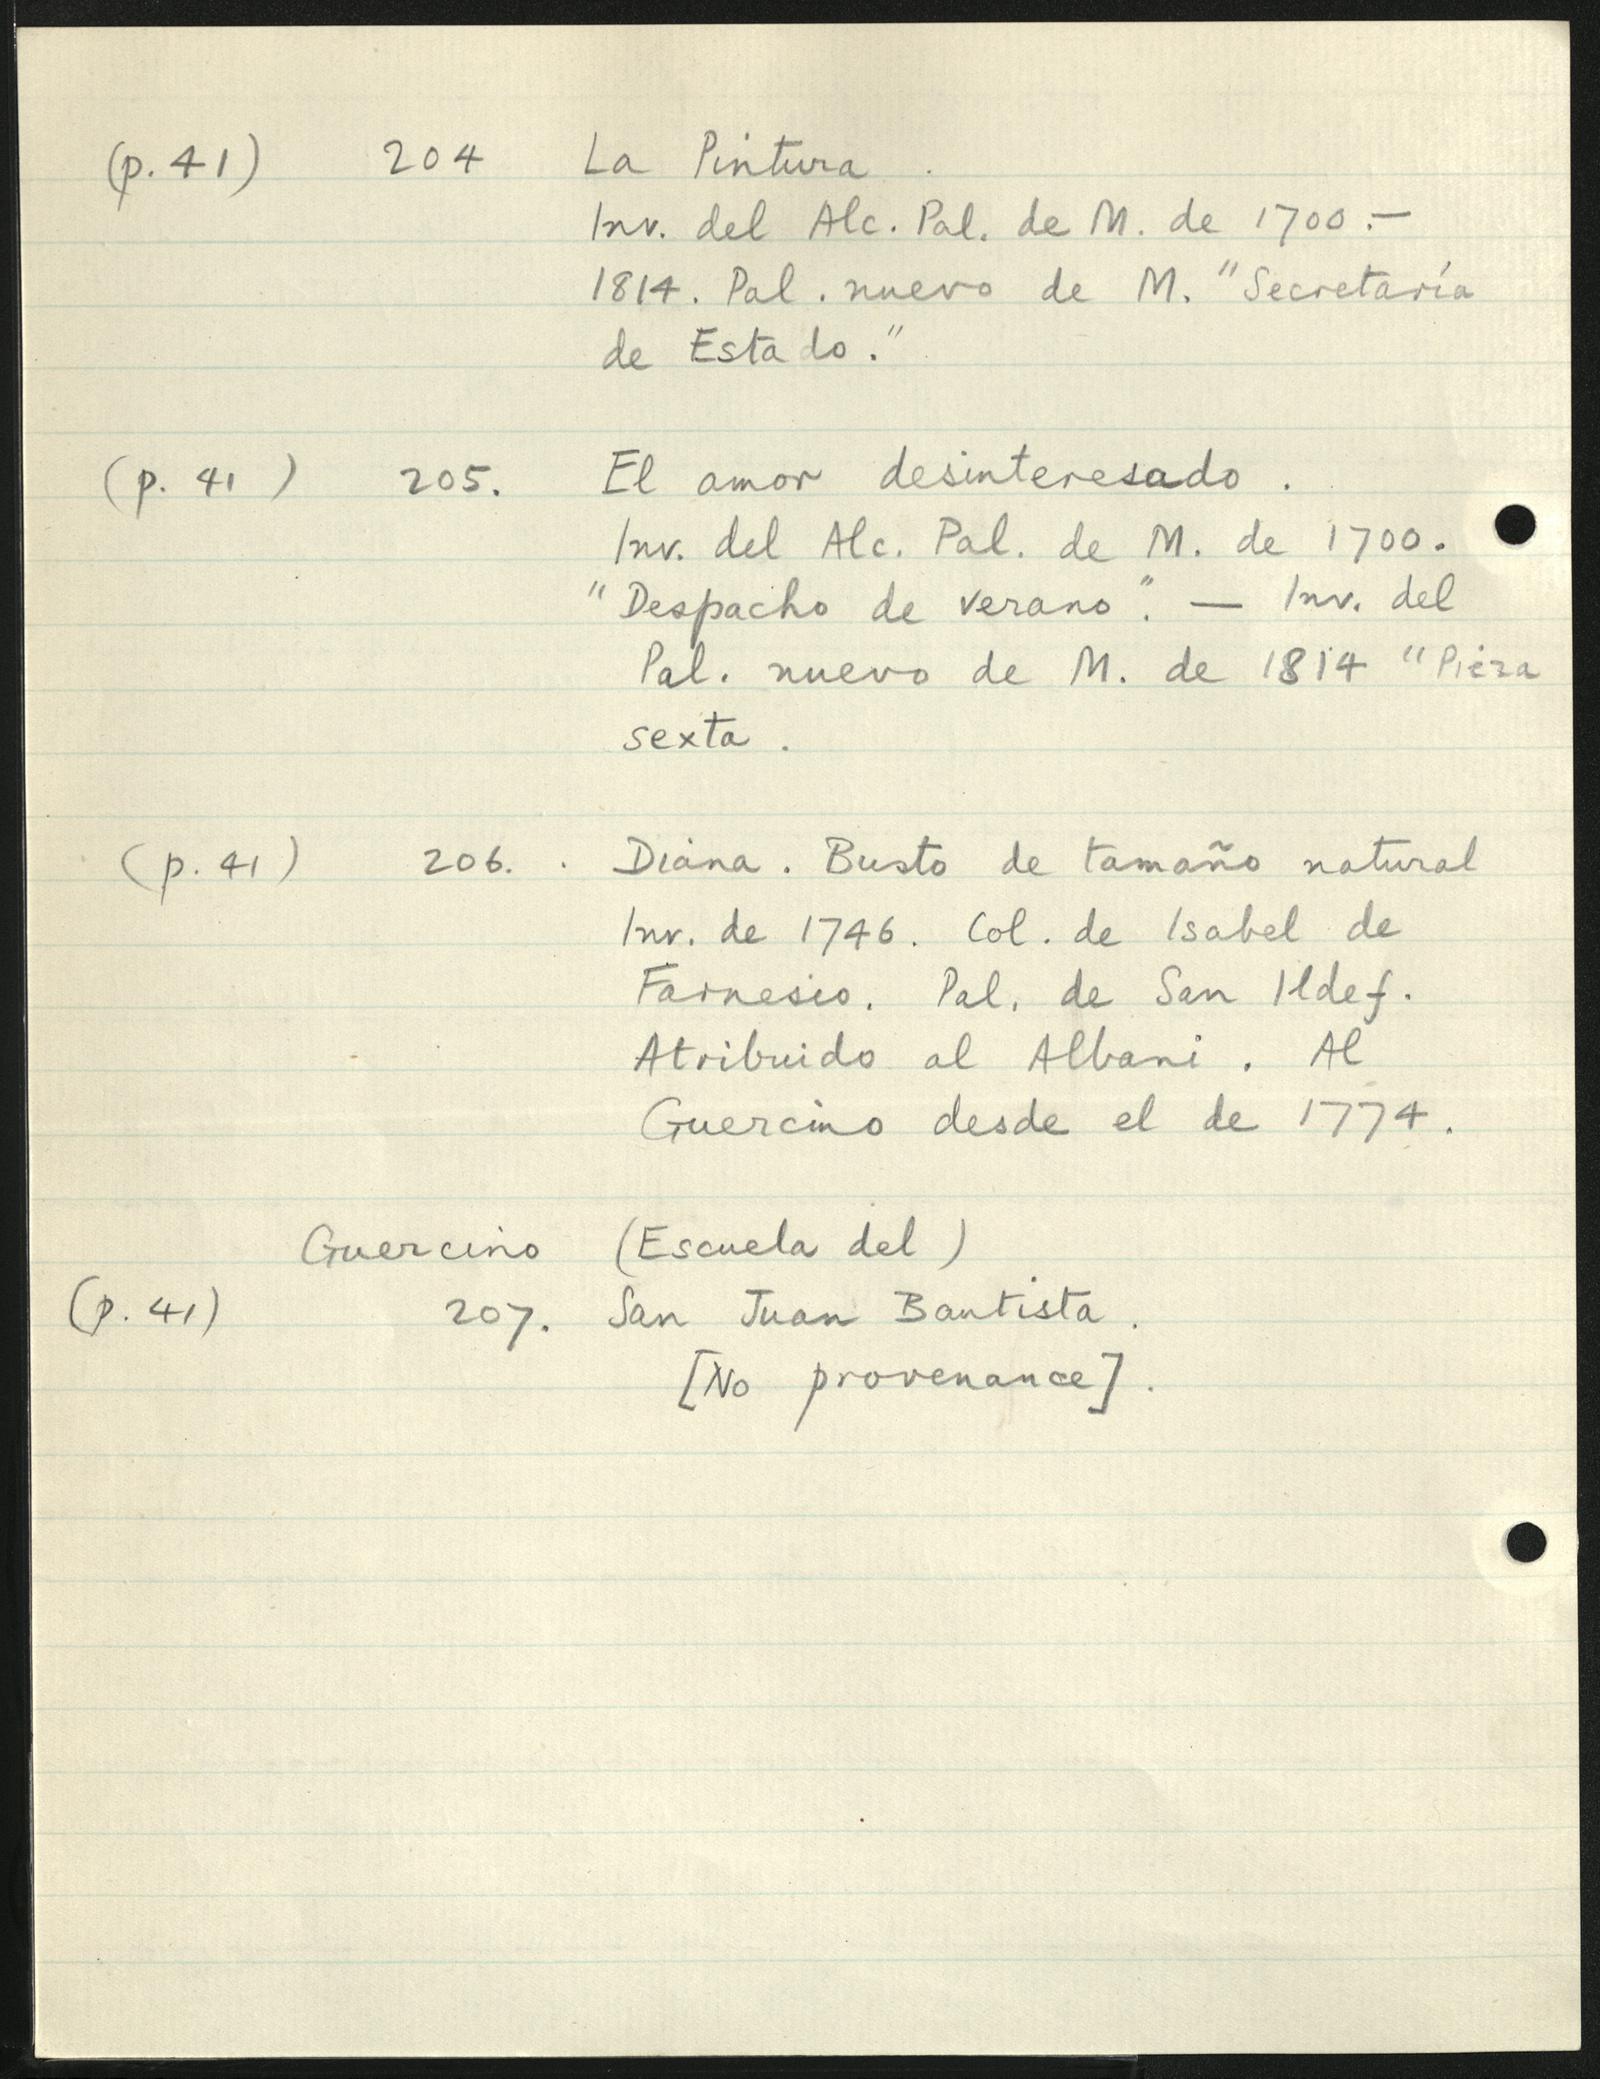 (p. 41) 204 La Pintura.
Inv. del Alc. Pal. de M. de 1700.—
1814. Pal. nuevo de M. "Secretaría
de Estado."
(p. 41) 205. El amor desinteresado.
Inv. del Alc. Pal. de M. de 1700.
"Despacho de verano". — Inv. del
Pal. nuevo de M. de 1814 "Pieza
sexta.
(p. 41) 206. Diana. Busto de tamaño natural
Inv. de 1746. Col. de Isabel de
Farnesio. Pal. de San Ildef.
Atribuido al Albani. Al
Guercino desde el de 1774.
Guercino (Escuela del)
(p. 41) 207. San Juan Bautista.
[No provenance].